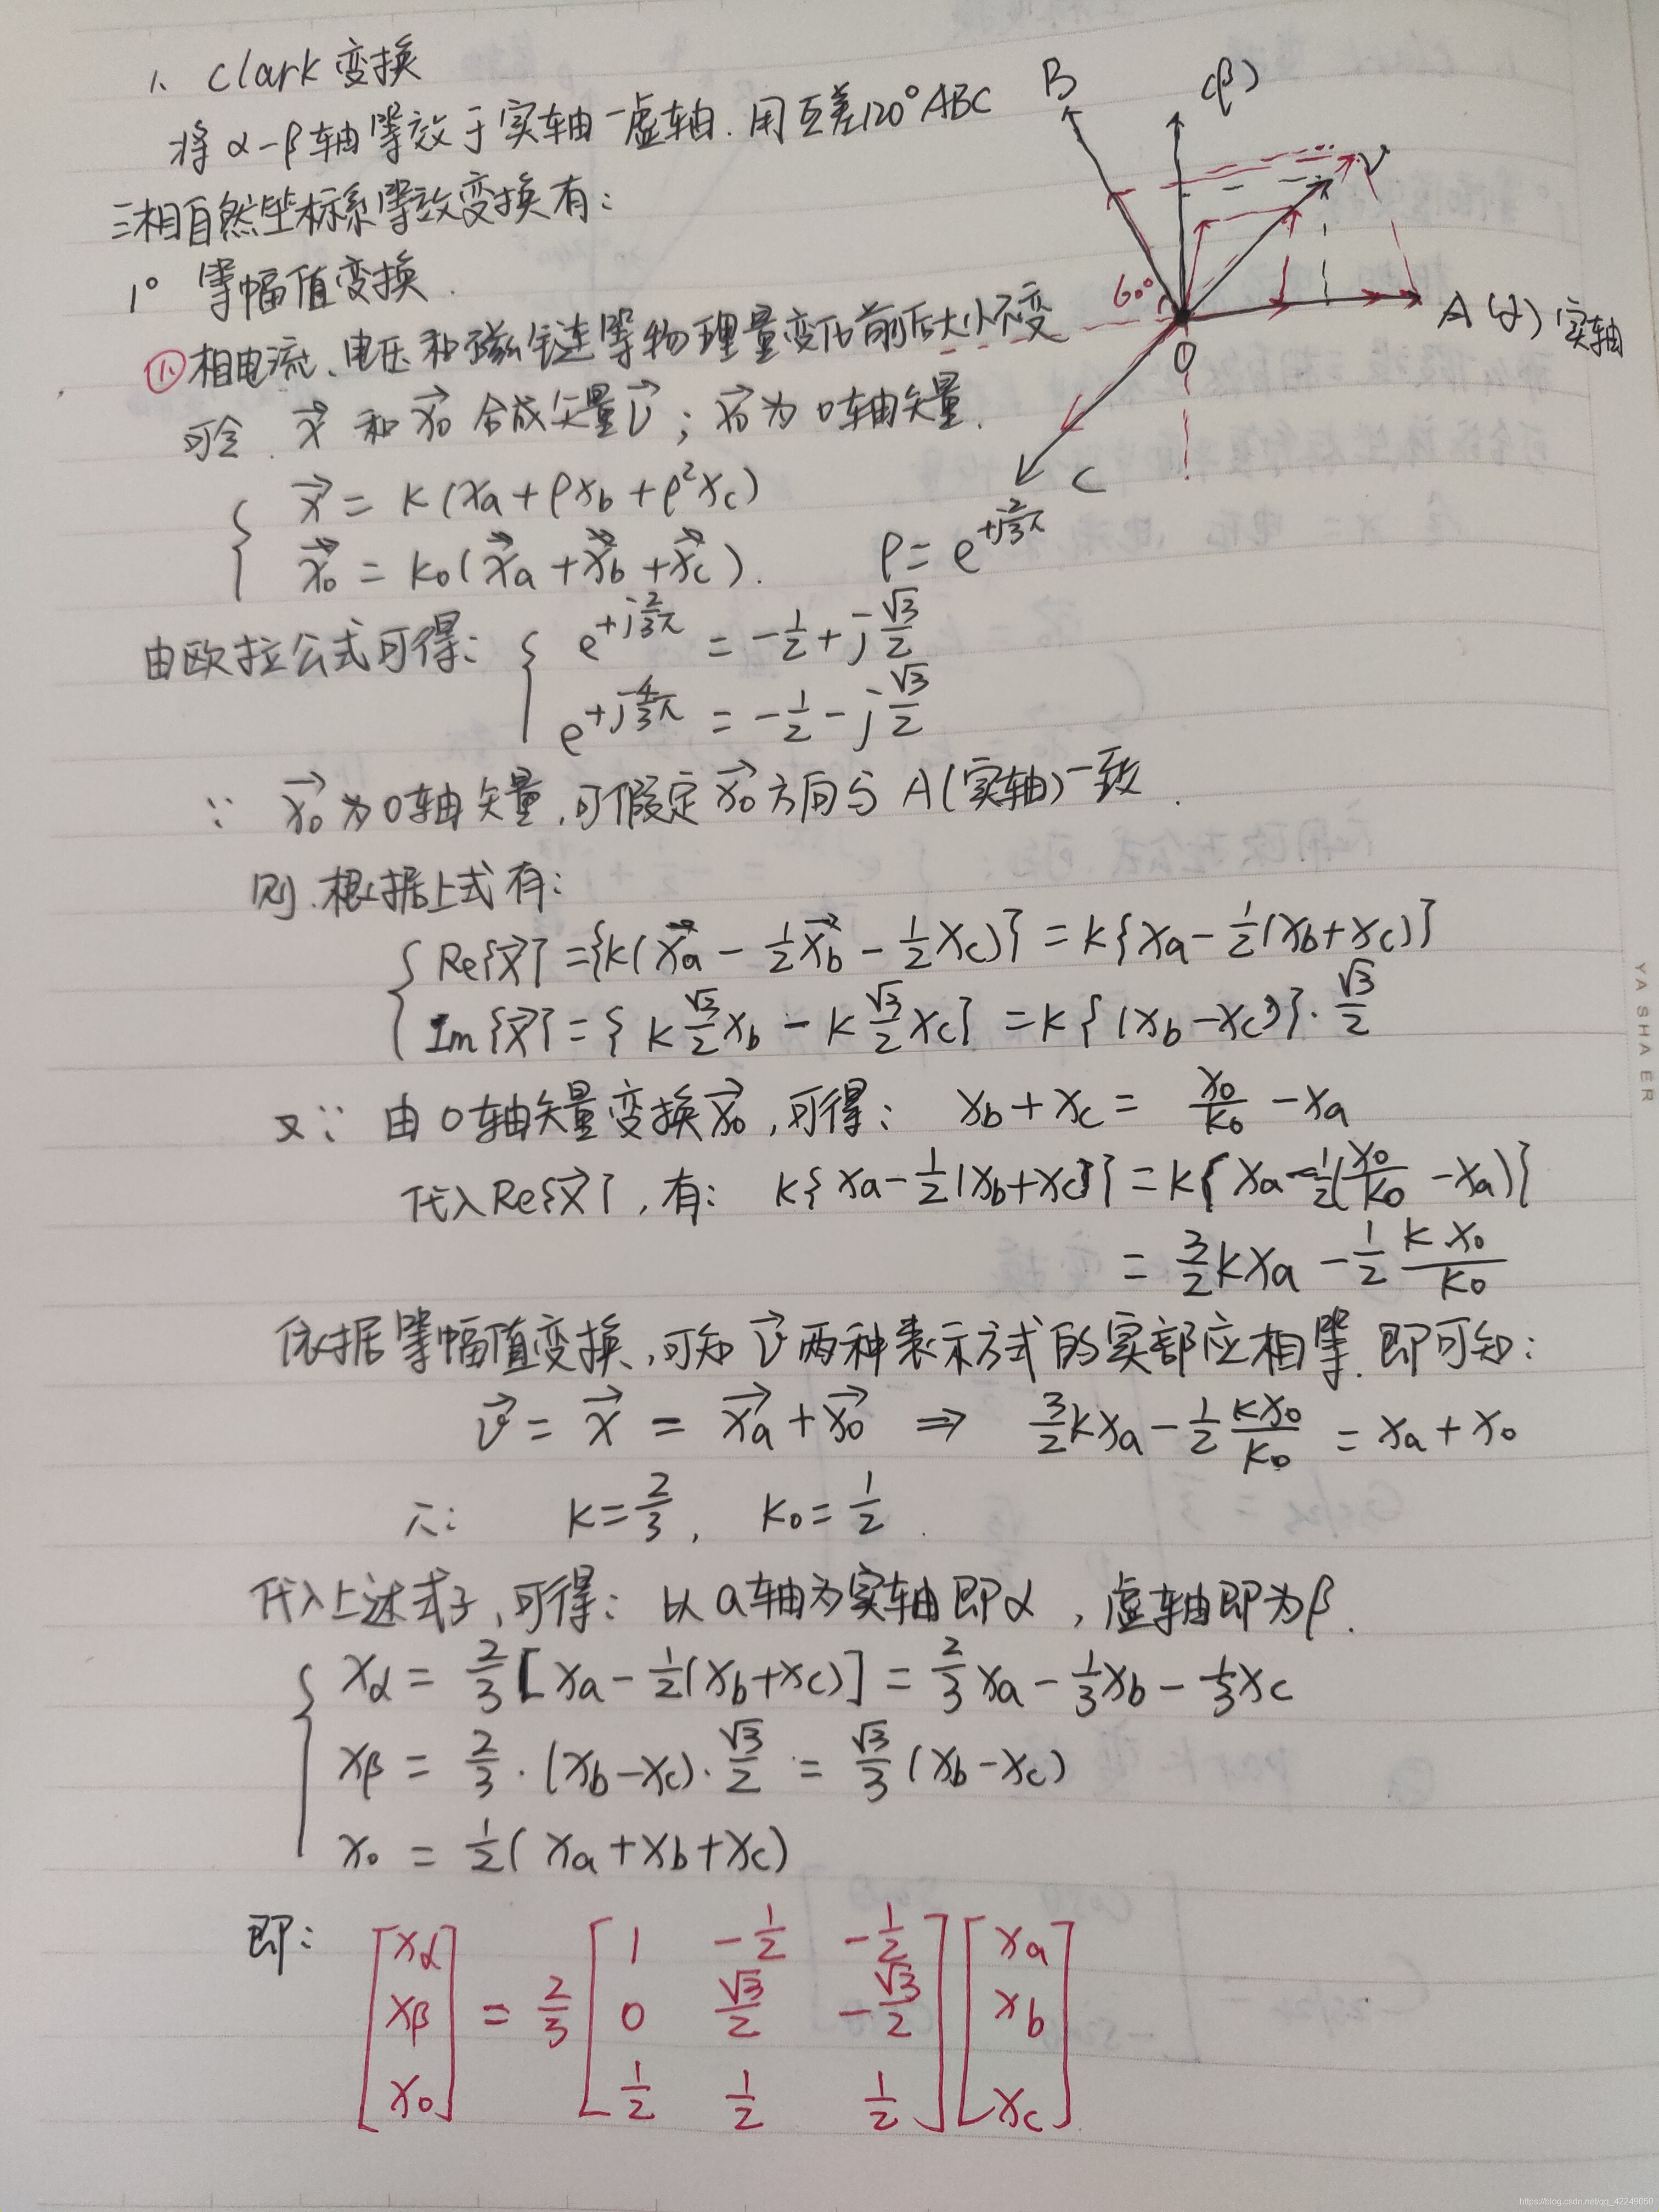 1、Clark 变换
将 α-β 轴等效于实轴-虚轴. 用互差120° ABC
三相自然坐标系等效变换有:
1° 等幅值变换.
(1) 相电流、电压和磁链等物理量变化前后大小不变
可令. x⃗ 和 x⃗₀ 合成矢量 v⃗ ; x⃗₀ 为 0轴矢量.
{ x⃗ = k(xa + ρxb + ρ²xc)
x⃗₀ = k₀(x⃗a + x⃗b + x⃗c). ρ = e^{+j2/3π}
由欧拉公式可得: { e^{+j2/3π} = -1/2 + j√3/2
e^{+j4/3π} = -1/2 - j√3/2
∵ x⃗₀ 为0轴矢量, 可假定 x⃗₀ 方向与 A(实轴)一致.
则. 根据上式有:
{ Re{x⃗} = {k(x⃗a - 1/2 x⃗b - 1/2 xc)} = k{xa - 1/2(xb+xc)}
Im{x⃗} = { k √3/2 xb - k √3/2 xc} = k{(xb-xc)}·√3/2
又∵ 由0轴矢量变换x⃗₀, 可得: xb + xc = x₀/k₀ - xa
代入Re{x⃗}, 有: k{xa - 1/2(xb+xc)} = k{xa - 1/2(x₀/k₀ - xa)}
= 3/2 kxa - 1/2 kx₀/k₀
依据等幅值变换, 可知 v⃗ 两种表示方式的实部应相等. 即可知:
v⃗ = x⃗ = x⃗a + x⃗₀ ⇒ 3/2 kxa - 1/2 kx₀/k₀ = xa + x₀
∴: k = 2/3, k₀ = 1/2.
代入上述式子, 可得: 以 a轴为实轴即α, 虚轴即为β.
{ xα = 2/3[xa - 1/2(xb+xc)] = 2/3 xa - 1/3 xb - 1/3 xc
xβ = 2/3·(xb-xc)·√3/2 = √3/3(xb-xc)
x₀ = 1/2(xa + xb + xc)
即: [xα] = 2/3 [1 -1/2 -1/2] [xa]
[xβ] [0 √3/2 -√3/2] [xb]
[x₀] [1/2 1/2 1/2] [xc]
B
(β)
V
60°
A (α) 实轴
0
C
YASHAER
https://blog.csdn.net/qq_42249050